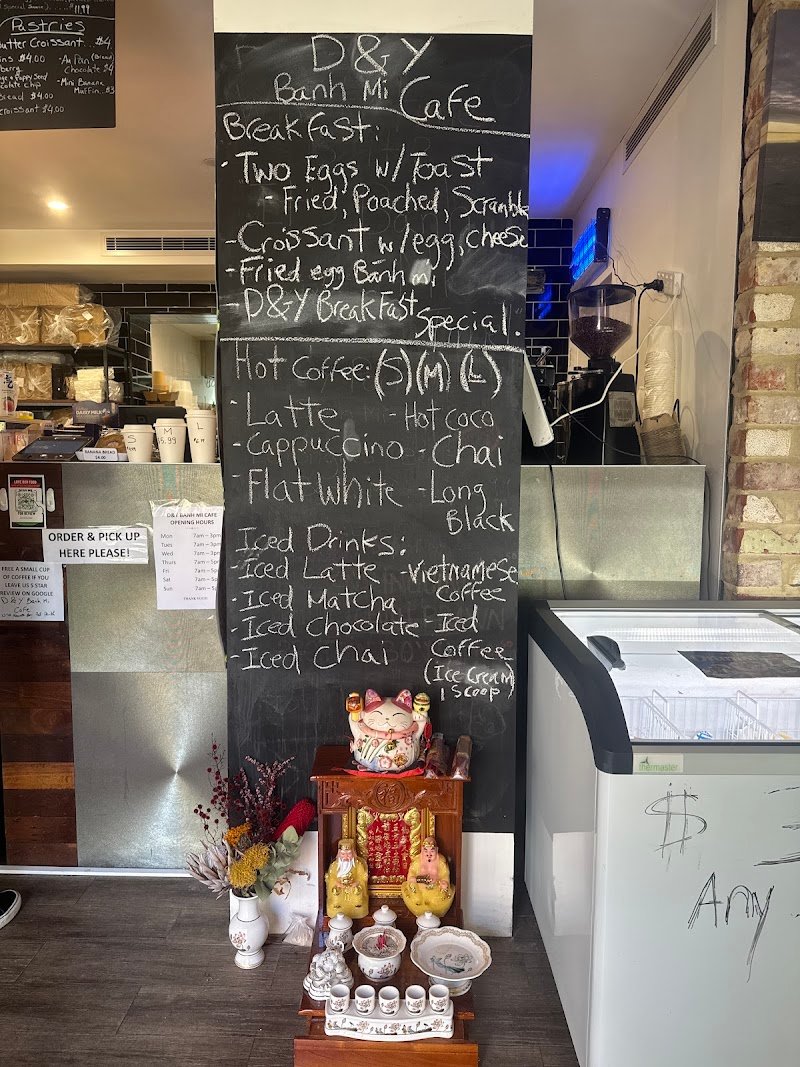 $11.99
Pastries
Butter Croissant...$4
$4.00
Au Pain (Bread)
Chocolate $4
Poppy Seed
Mini Banana
Muffin..$3
Bread $4.00
Croissant $4.00
D&Y
Banh Mi Cafe
Breakfast:
- Two Eggs w/ Toast
- Fried, Poached, Scramble
- Croissant w/egg, cheese
- Fried egg Banh mi
- D&Y Breakfast Special.
Hot Coffee: (S) (M) (L)
- Latte - Hot coco
- Cappuccino - Chai
- Flat White - Long
Black
Iced Drinks:
- Iced Latte - Vietnamese
Coffee
- Iced Matcha
- Iced Chocolate - Iced
Coffee
- Iced Chai
(Ice Cream
1 scoop)
S
M
$5.99
L
BANANA BREAD
$4.00
ORDER & PICK UP
HERE PLEASE!
D&Y BANH MI CAFE
OPENING HOURS
Mon 7am – 3pm
Tue 7am – 3pm
Wed 7am – 3pm
Thu 7am – 3pm
Fri 7am – 3pm
Sat 7am – 3pm
Sun 7am – 3pm
THANK YOU!!
FREE A SMALL CUP
OF COFFEE IF YOU
LEAVE US 5 STAR
REVIEW ON GOOGLE
D&Y Banh Mi
Cafe
thermaster
$
Any